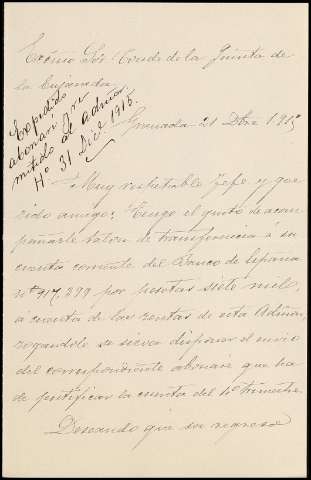 Excmo Sór Conde de la Quinta de
la Enjarada
Expedido
abonaré y re
mitido al admor.
Hº 31 Dice 1915.
Granada 21 Dbre 1915
Muy respetable Jefe y que
rido amigo: Tengo el gusto de acom
pañarle talon de transferencia á su
cuenta corriente del Banco de España
nº 917,299 por pesetas siete mil,
á cuenta de las rentas de esta Admón,
rogandole se sirva disponer el envio
del correspondiente abonaré que ha
de justificar la cuenta del 4º trimestre.
Deseando que su regreso